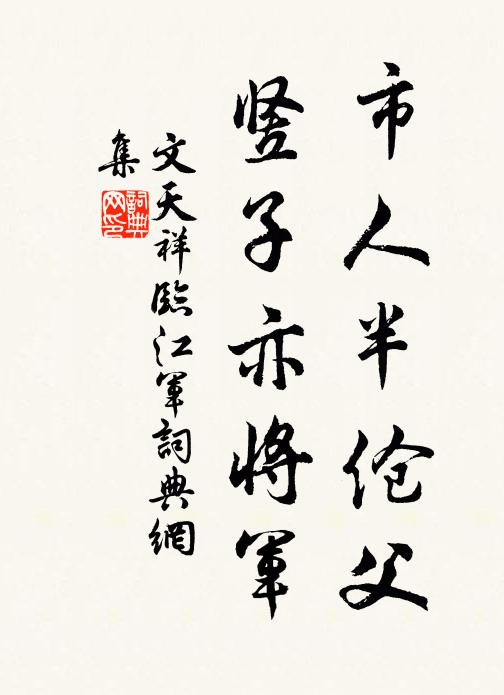 市人半伧父
竖子亦将军
文天祥臨江軍詞典網
集
詞典
网印